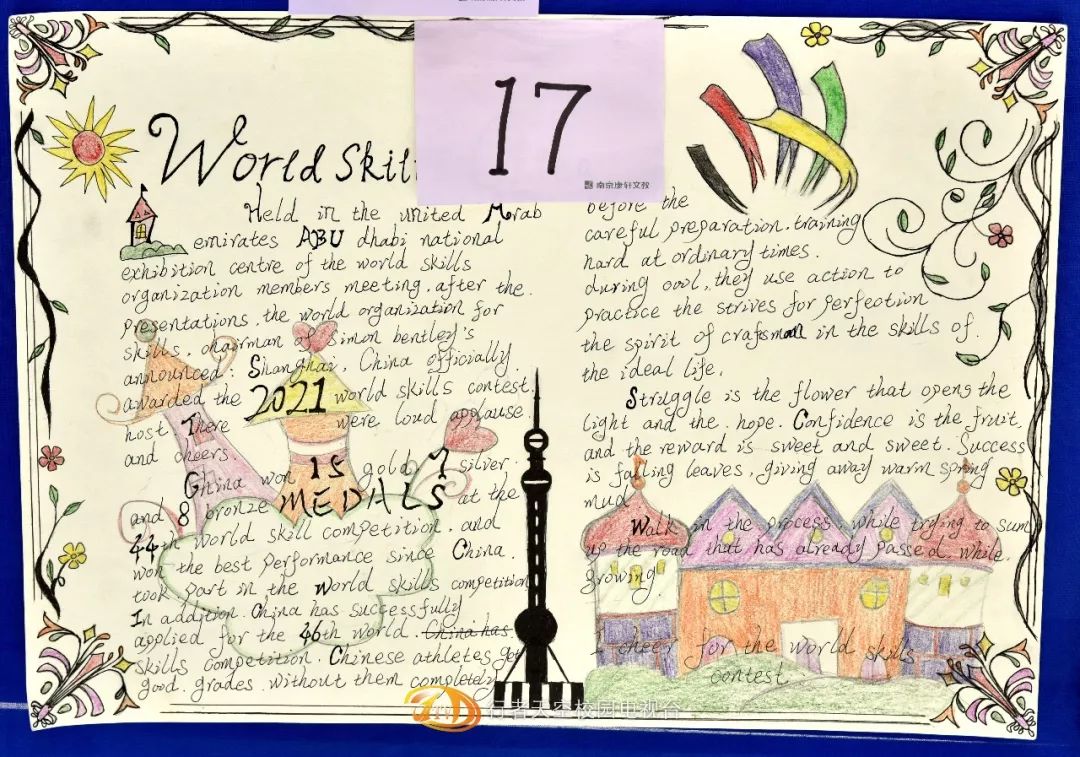 17
南京康轩文教
World Skill
Held in the united Arab
emirates ABU dhabi national
exhibition centre of the world skills
organization members meeting. after the
presentations, the world organization for
skills, chairman of simon bentley's
announced: Shanghai, China officially
awarded the 2021 world skills contest
host There were loud applause.
and cheers.
China won 15 gold 7 silver
and 8 bronze MEDALS at the
44th world skill competition, and
won the best performance since China.
took part in the world skills competition
In addition. China has successfully
applied for the 46th world. China has
skills competition. Chinese athletes got
good grades without them completely
before the
careful preparation, training
hard at ordinary times.
during ool, they use action to
practice the strives for perfection
the spirit of crafsman in the skills of
the ideal life.
Struggle is the flower that opens the
light and the hope. Confidence is the fruit,
and the reward is sweet and sweet. Success
is falling leaves, giving away warm spring
mud.
Walk in the process, while trying to sum
up the road that has already passed. while
growing.
I cheer for the world skills
contest.
行者天空校园电视台